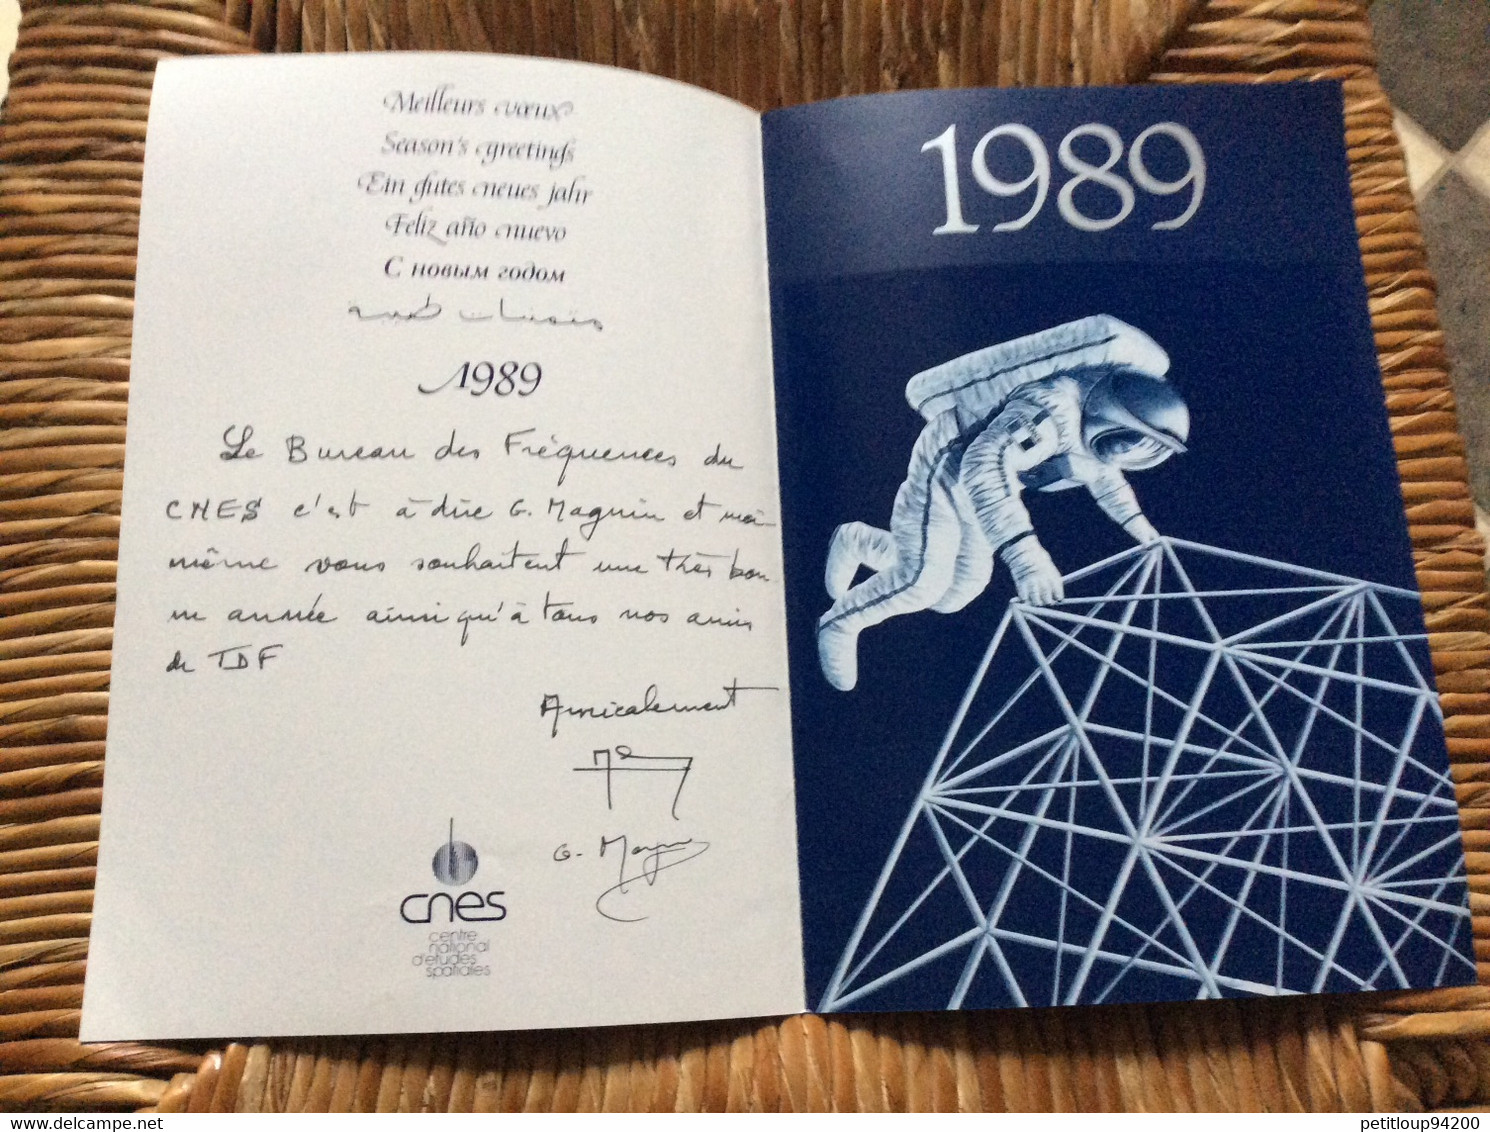 Meilleurs vœux
Season's greetings
Ein gutes neues jahr
Feliz año nuevo
С новым годом
1989
Le Bureau des Fréquences du
CNES c'est à dire G. Magnin et moi
même vous souhaitent une très bon
ne année ainsi qu'à tous nos amis
de TDF
Amicalement
G. Magnin
cnes
centre
national
d'etudes
spatiales
1989
www.delcampe.net
petitloup94200